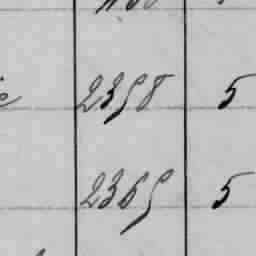 2358 5
2365 5